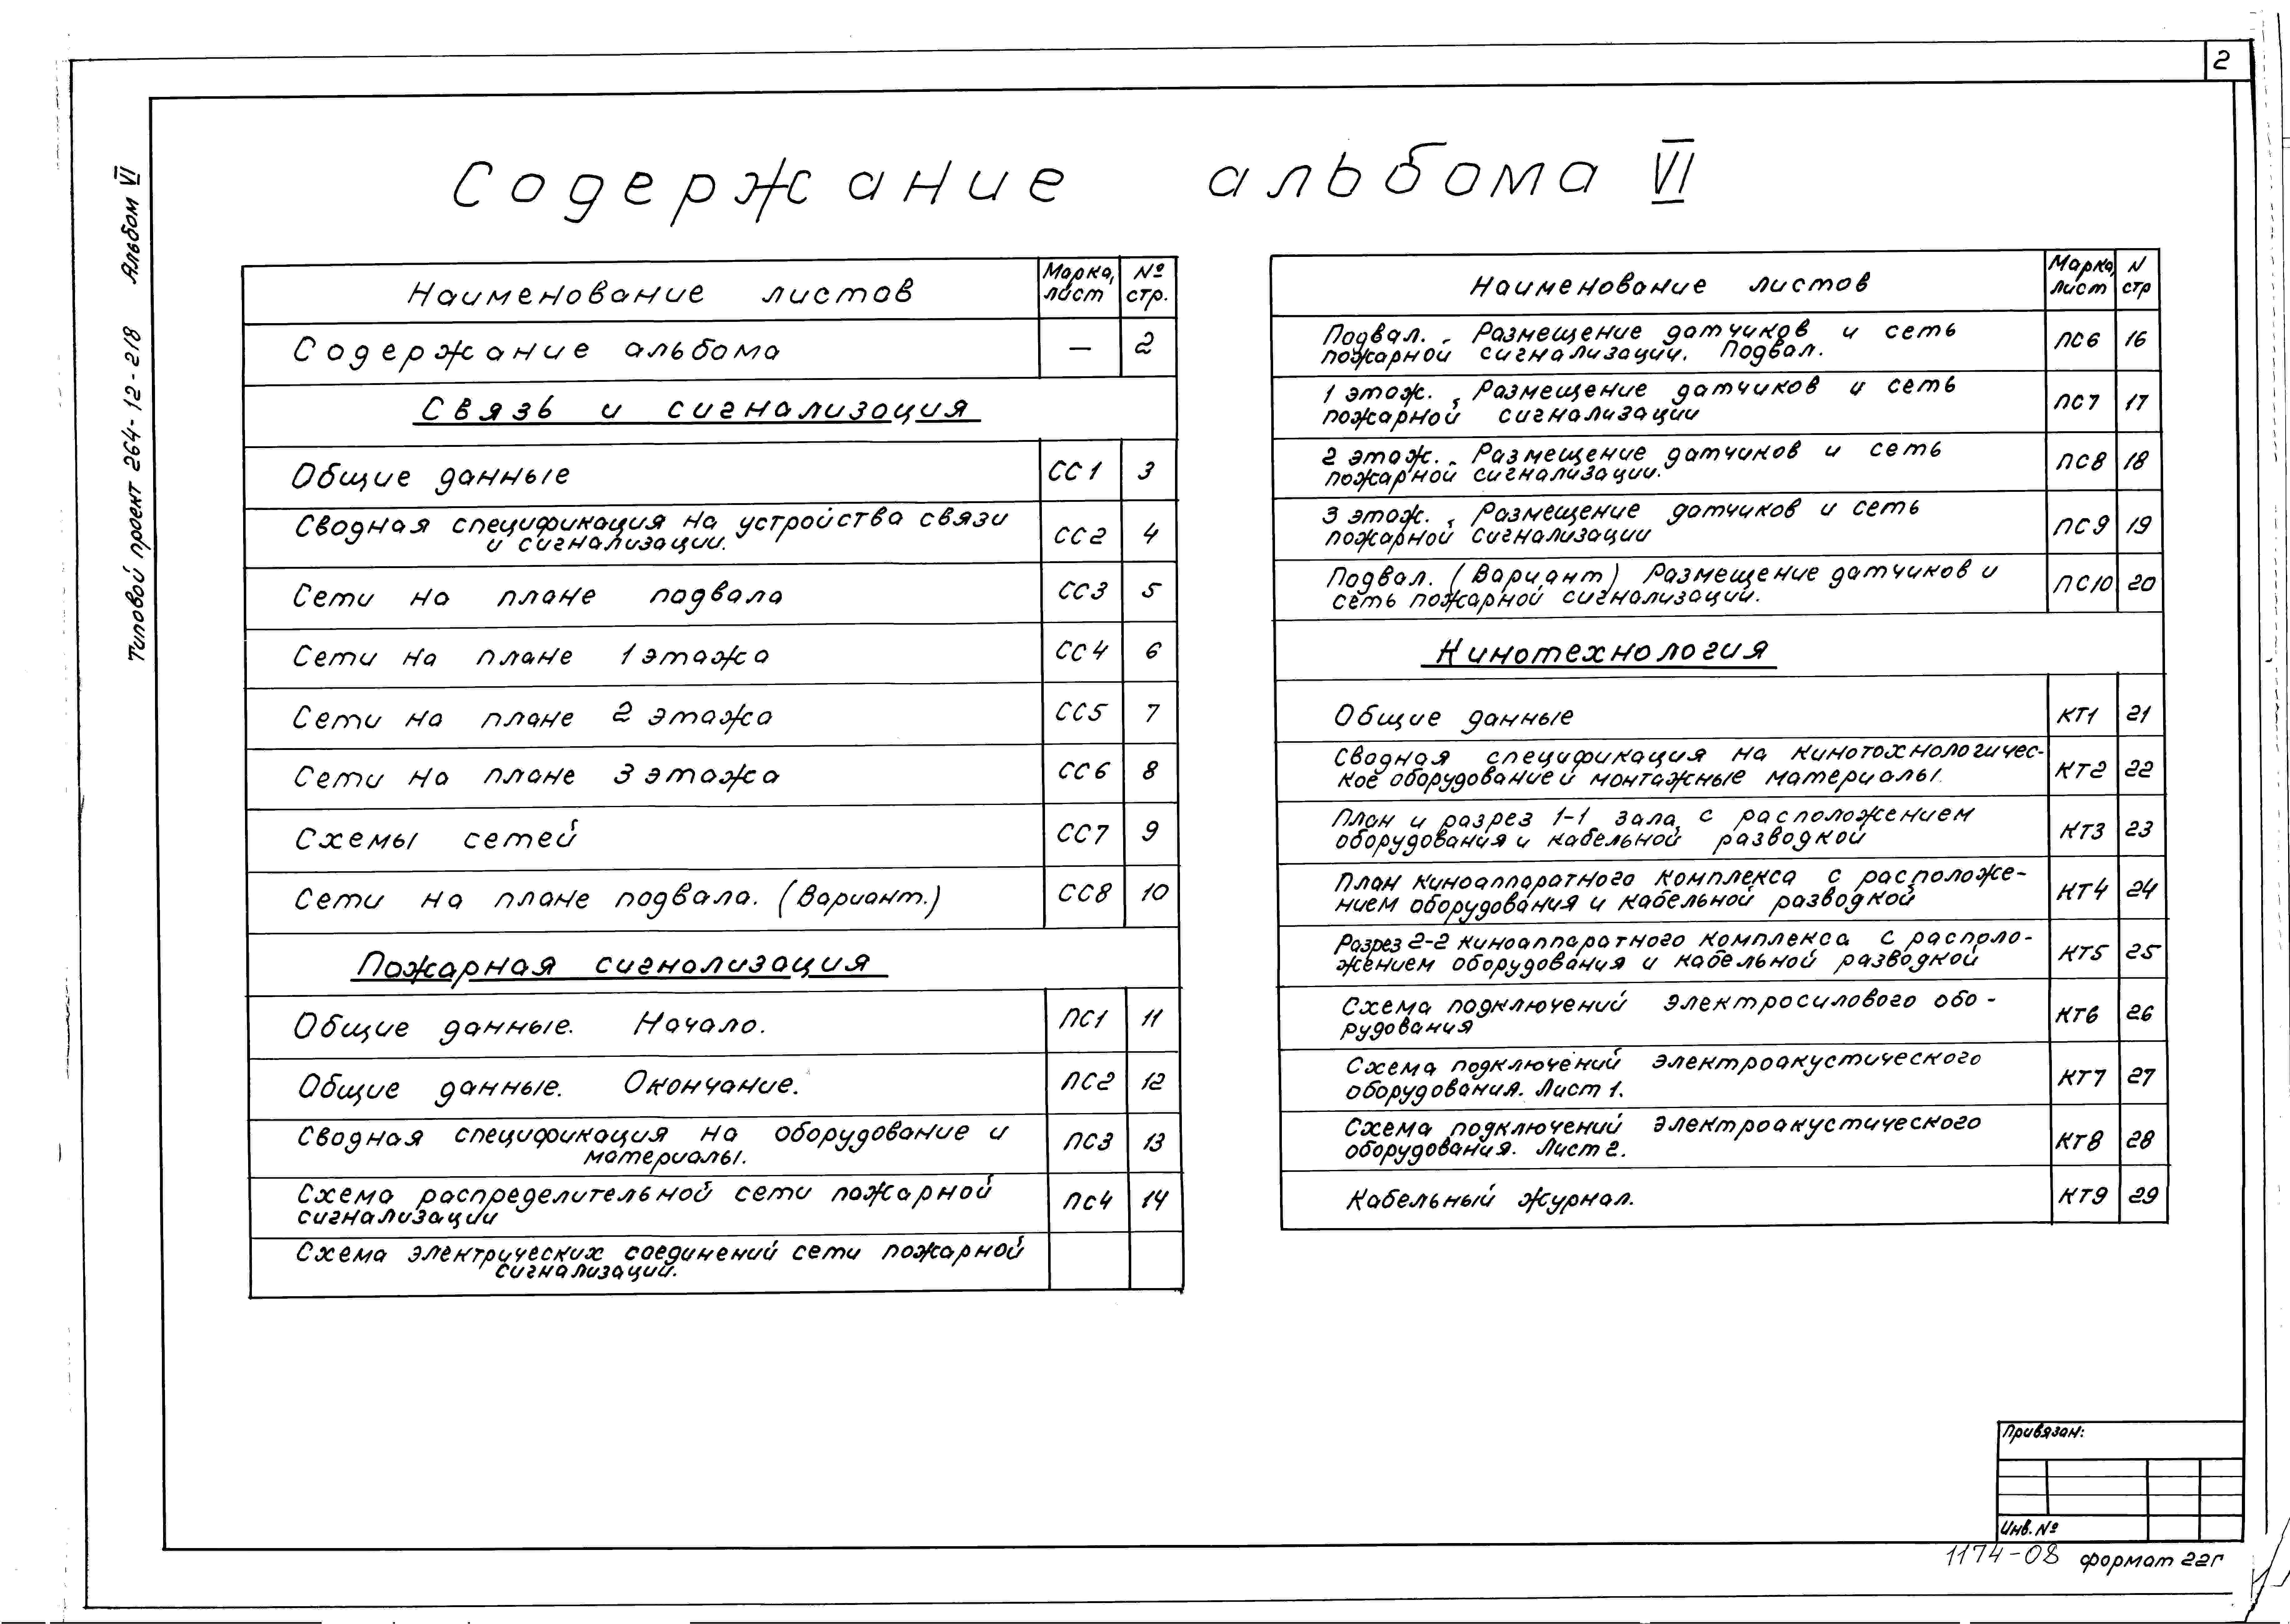 2
Типовой проект 264-12-218 Альбом VI
Содержание альбома VI
Наименование листов
Марка, лист
№ стр.
Содержание альбома — 2
Связь и сигнализация
Общие данные СС1 3
Сводная спецификация на устройства связи
и сигнализации. СС2 4
Сети на плане подвала СС3 5
Сети на плане 1 этажа СС4 6
Сети на плане 2 этажа СС5 7
Сети на плане 3 этажа СС6 8
Схемы сетей СС7 9
Сети на плане подвала. (Вариант.) СС8 10
Пожарная сигнализация
Общие данные. Начало. ПС1 11
Общие данные. Окончание. ПС2 12
Сводная спецификация на оборудование и
материалы. ПС3 13
Схема распределительной сети пожарной
сигнализации ПС4 14
Схема электрических соединений сети пожарной
сигнализации.
Наименование листов
Марка, лист
N стр
Подвал. Размещение датчиков и сеть
пожарной сигнализации. Подвал. ПС6 16
1 этаж. Размещение датчиков и сеть
пожарной сигнализации ПС7 17
2 этаж. Размещение датчиков и сеть
пожарной сигнализации. ПС8 18
3 этаж. Размещение датчиков и сеть
пожарной сигнализации ПС9 19
Подвал. (Вариант) Размещение датчиков и
сеть пожарной сигнализации. ПС10 20
Кинотехнология
Общие данные КТ1 21
Сводная спецификация на кинотохнологичес-
кое оборудование и монтажные материалы. КТ2 22
План и разрез 1-1 зала, с расположением
оборудования и кабельной разводкой КТ3 23
План киноаппаратного комплекса с расположе-
нием оборудования и кабельной разводкой КТ4 24
Разрез 2-2 киноаппаратного комплекса с располо-
жением оборудования и кабельной разводкой КТ5 25
Схема подключений электросилового обо-
рудования КТ6 26
Схема подключений электроакустического
оборудования. Лист 1. КТ7 27
Схема подключений электроакустического
оборудования. Лист 2. КТ8 28
Кабельный журнал. КТ9 29
Привязан:
Инв. №
1174-08 формат 22г